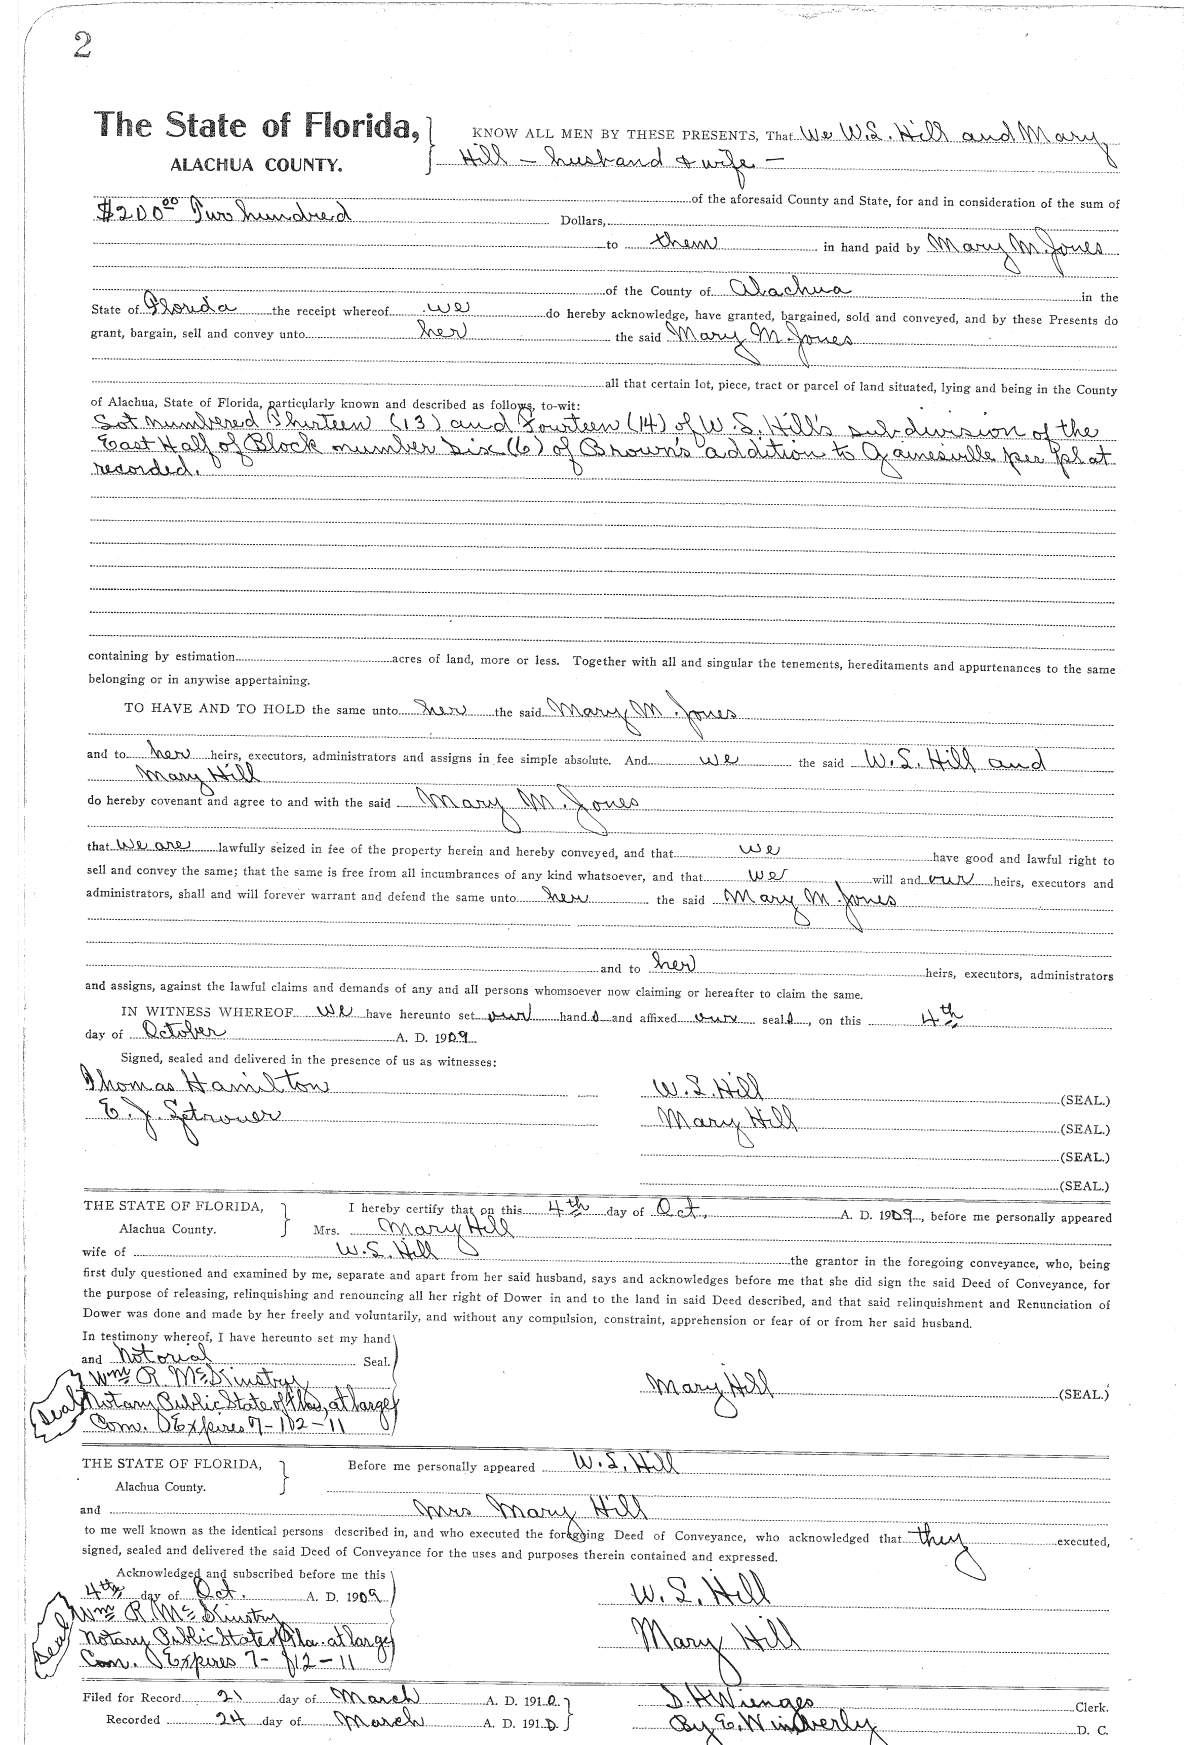 2
The State of Florida,
ALACHUA COUNTY.
KNOW ALL MEN BY THESE PRESENTS, That We W.S. Hill and Mary
Hill — husband & wife —
of the aforesaid County and State, for and in consideration of the sum of
$200⁰⁰ Two hundred Dollars,
to them in hand paid by Mary M. Jones
of the County of Alachua in the
State of Florida the receipt whereof we do hereby acknowledge, have granted, bargained, sold and conveyed, and by these Presents do
grant, bargain, sell and convey unto her the said Mary M. Jones
all that certain lot, piece, tract or parcel of land situated, lying and being in the County
of Alachua, State of Florida, particularly known and described as follows, to-wit:
Lot numbered Thirteen (13) and Fourteen (14) of W.S. Hill's subdivision of the
East Half of Block number Six (6) of Brown's addition to Gainesville per plat
recorded.
containing by estimation acres of land, more or less. Together with all and singular the tenements, hereditaments and appurtenances to the same
belonging or in anywise appertaining.
TO HAVE AND TO HOLD the same unto her the said Mary M. Jones
and to her heirs, executors, administrators and assigns in fee simple absolute. And we the said W.S. Hill and
Mary Hill
do hereby covenant and agree to and with the said Mary M. Jones
that we are lawfully seized in fee of the property herein and hereby conveyed, and that we have good and lawful right to
sell and convey the same; that the same is free from all incumbrances of any kind whatsoever, and that we will and our heirs, executors and
administrators, shall and will forever warrant and defend the same unto her the said Mary M. Jones
and to her heirs, executors, administrators
and assigns, against the lawful claims and demands of any and all persons whomsoever now claiming or hereafter to claim the same.
IN WITNESS WHEREOF we have hereunto set our hands and affixed our seals, on this 4th
day of October A. D. 1909.
Signed, sealed and delivered in the presence of us as witnesses:
Thomas Hamilton W.S. Hill (SEAL.)
E. J. Mary Hill (SEAL.)
(SEAL.)
(SEAL.)
THE STATE OF FLORIDA,
Alachua County.
I hereby certify that on this 4th day of Oct. A. D. 1909, before me personally appeared
Mrs. Mary Hill
wife of W.S. Hill the grantor in the foregoing conveyance, who, being
first duly questioned and examined by me, separate and apart from her said husband, says and acknowledges before me that she did sign the said Deed of Conveyance, for
the purpose of releasing, relinquishing and renouncing all her right of Dower in and to the land in said Deed described, and that said relinquishment and Renunciation of
Dower was done and made by her freely and voluntarily, and without any compulsion, constraint, apprehension or fear of or from her said husband.
In testimony whereof, I have hereunto set my hand
and Notorial Seal.
Wm R. McKinstry
Seal Notary Public State of Fla, at large
Com. Expires 7-12-11
Mary Hill (SEAL.)
THE STATE OF FLORIDA,
Alachua County.
Before me personally appeared W.S. Hill
and Mrs Mary Hill
to me well known as the identical persons described in, and who executed the foregoing Deed of Conveyance, who acknowledged that they executed,
signed, sealed and delivered the said Deed of Conveyance for the uses and purposes therein contained and expressed.
Acknowledged and subscribed before me this
4th day of Oct. A. D. 1909
Wm R. McKinstry
Seal Notary Public State of Fla. at large
Com. Expires 7-12-11
W. S. Hill
Mary Hill
Filed for Record 21 day of March A. D. 1910. D. H Wienges Clerk.
Recorded 24 day of March A. D. 1910. By E. Wimberly D. C.